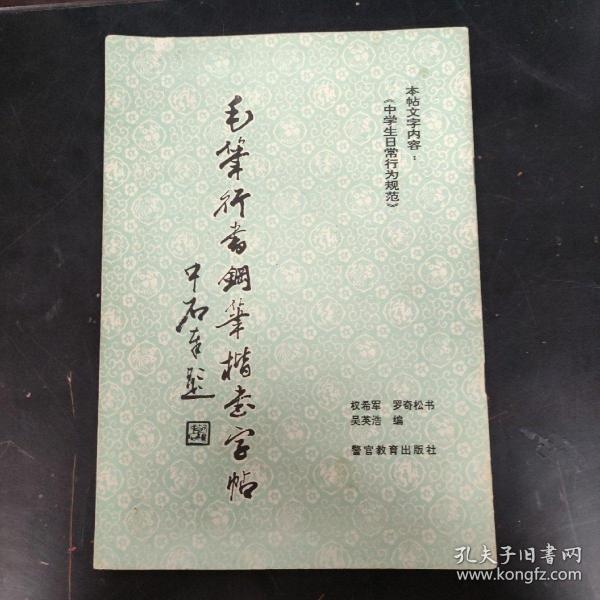 本帖文字内容：
《中学生日常行为规范》
毛筆行書鋼筆楷書字帖
中石左題
权希军 罗奇松书
吴英浩 编
警官教育出版社
孔夫子旧书网
www.kongfz.com